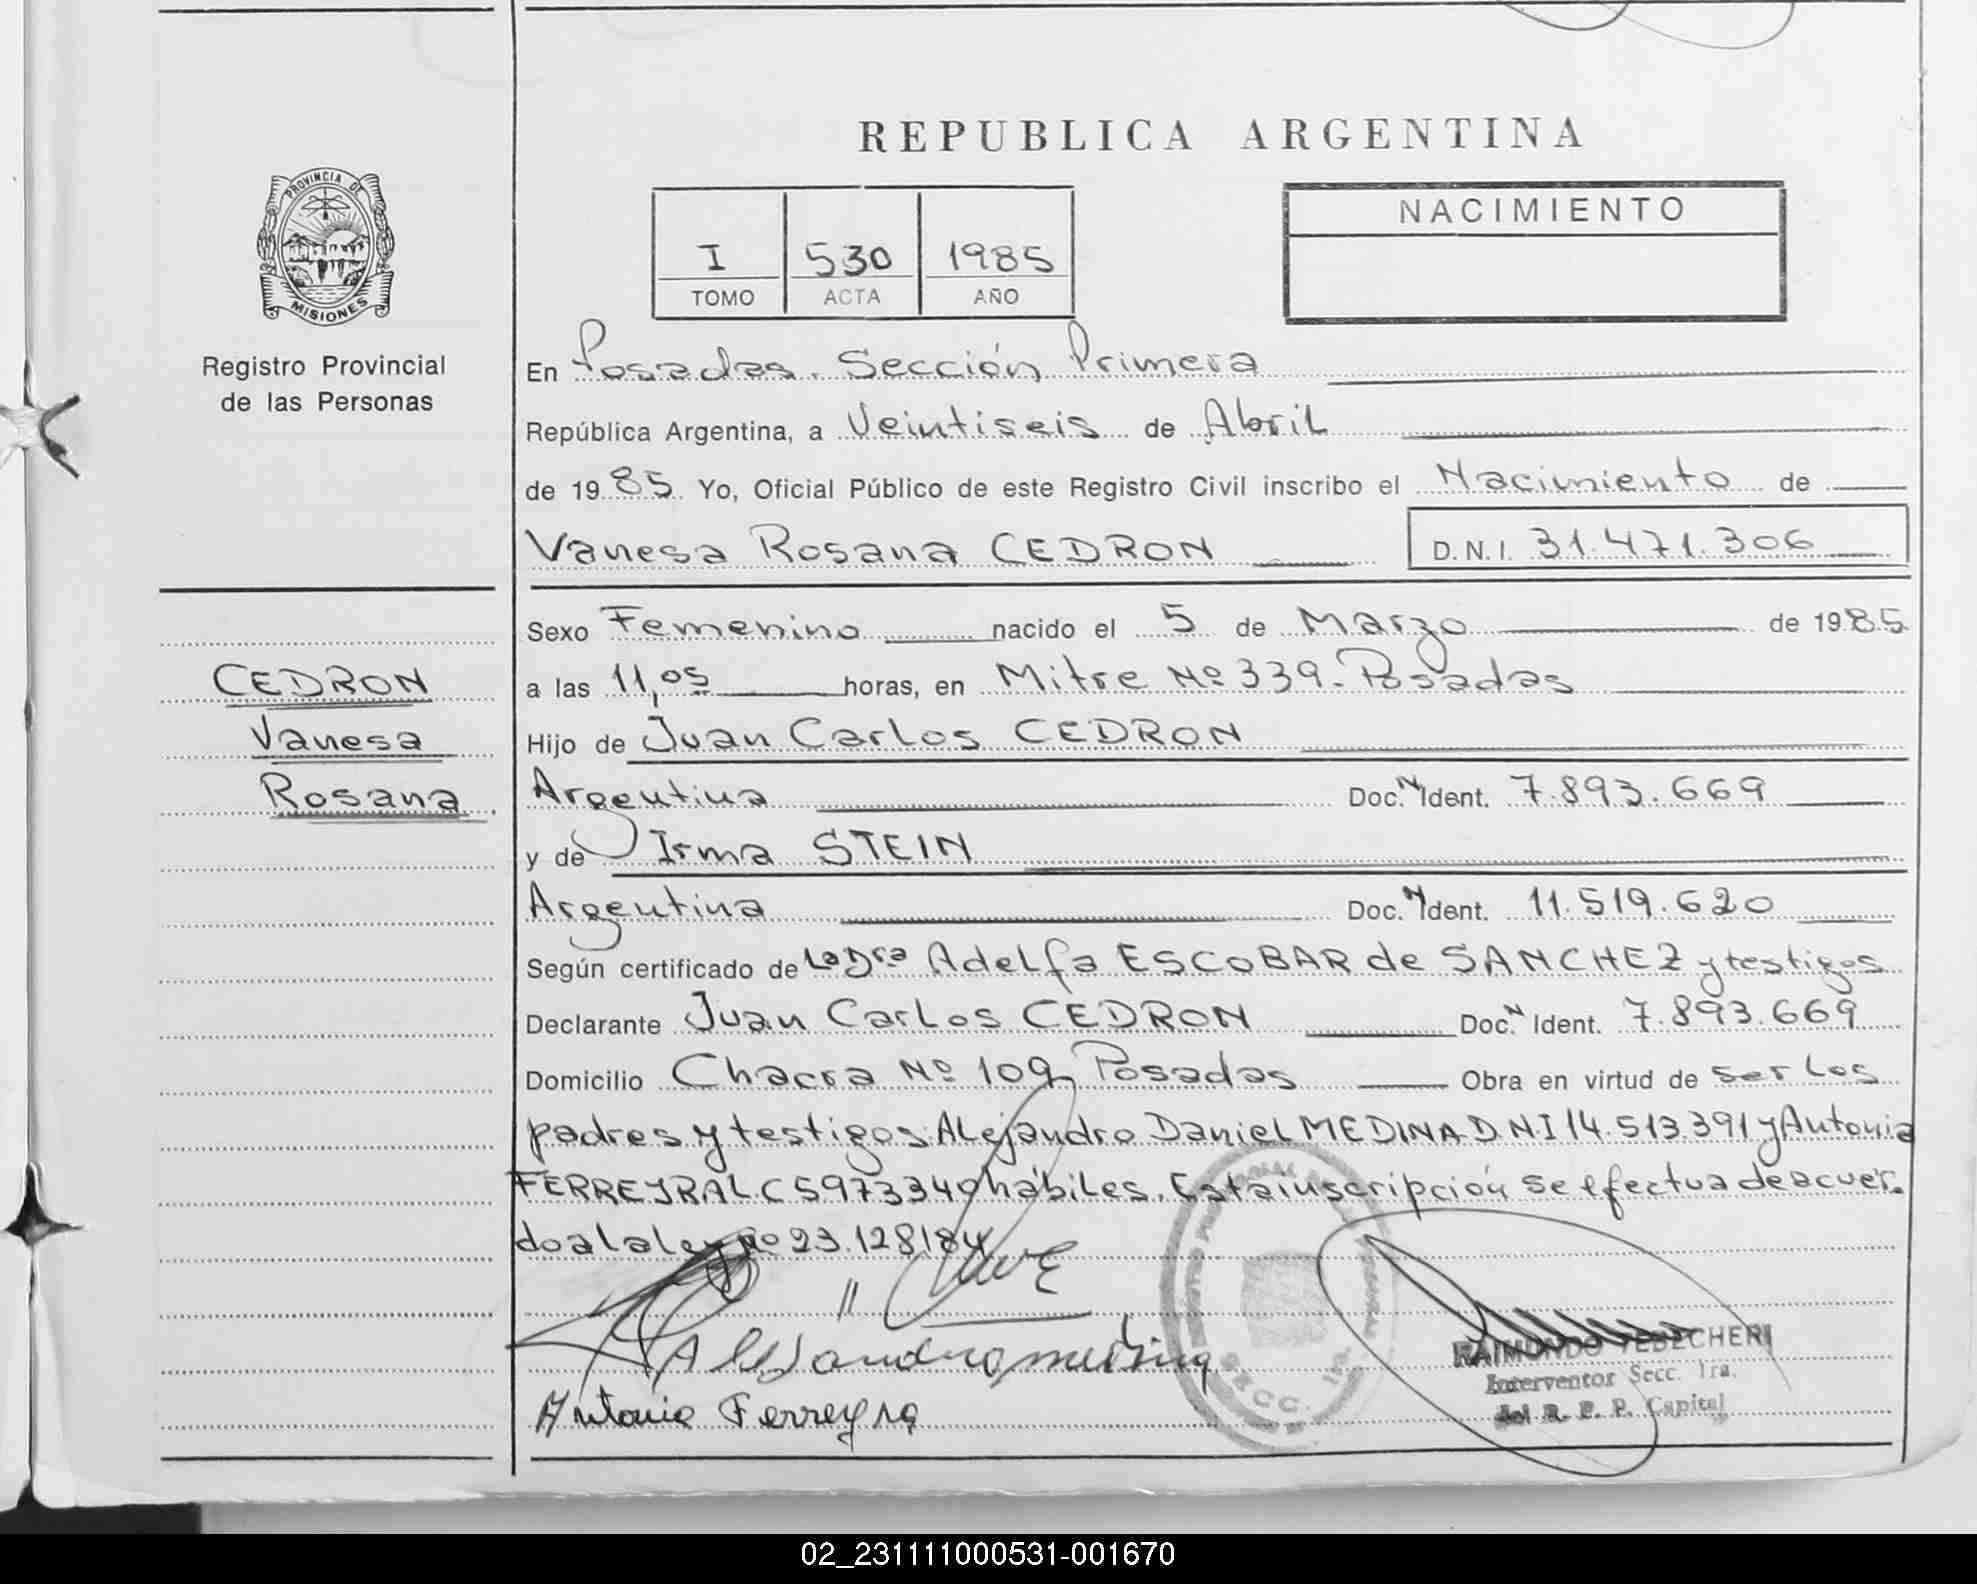 REPUBLICA ARGENTINA
PROVINCIA DE
MISIONES
Registro Provincial
de las Personas
I 530 1985
TOMO ACTA AÑO
NACIMIENTO
En Posadas. Sección Primera
República Argentina, a Veintiseis de Abril
de 1985 Yo, Oficial Público de este Registro Civil inscribo el Nacimiento de
Vanesa Rosana CEDRON D.N.I. 31.471.306
Sexo Femenino nacido el 5 de Marzo de 1985
CEDRON
Vanesa
Rosana
a las 11,05 horas, en Mitre Nº 339. Posadas
Hijo de Juan Carlos CEDRON
Argentina Doc. N Ident. 7.893.669
y de Irma STEIN
Argentina Doc. N Ident. 11.519.620
Según certificado de La Dra Adelfa ESCOBAR de SANCHEZ y testigos
Declarante Juan Carlos CEDRON Doc. N Ident. 7.893.669
Domicilio Chacra Nº 109 Posadas Obra en virtud de ser los
padres y testigos: Alejandro Daniel MEDINA D.N.I 14.513.391 y Antonia
FERREYRA L.C 5973349 hábiles. Esta inscripción se efectua de acuer-
do a la ley Nº 23.128/84
Alejandro medina
Antonia Ferreyra
SECC. 1ra.
RAIMUNDO YEDECHERI
Interventor Secc. 1ra.
del R. P. P. Capital
02_231111000531-001670